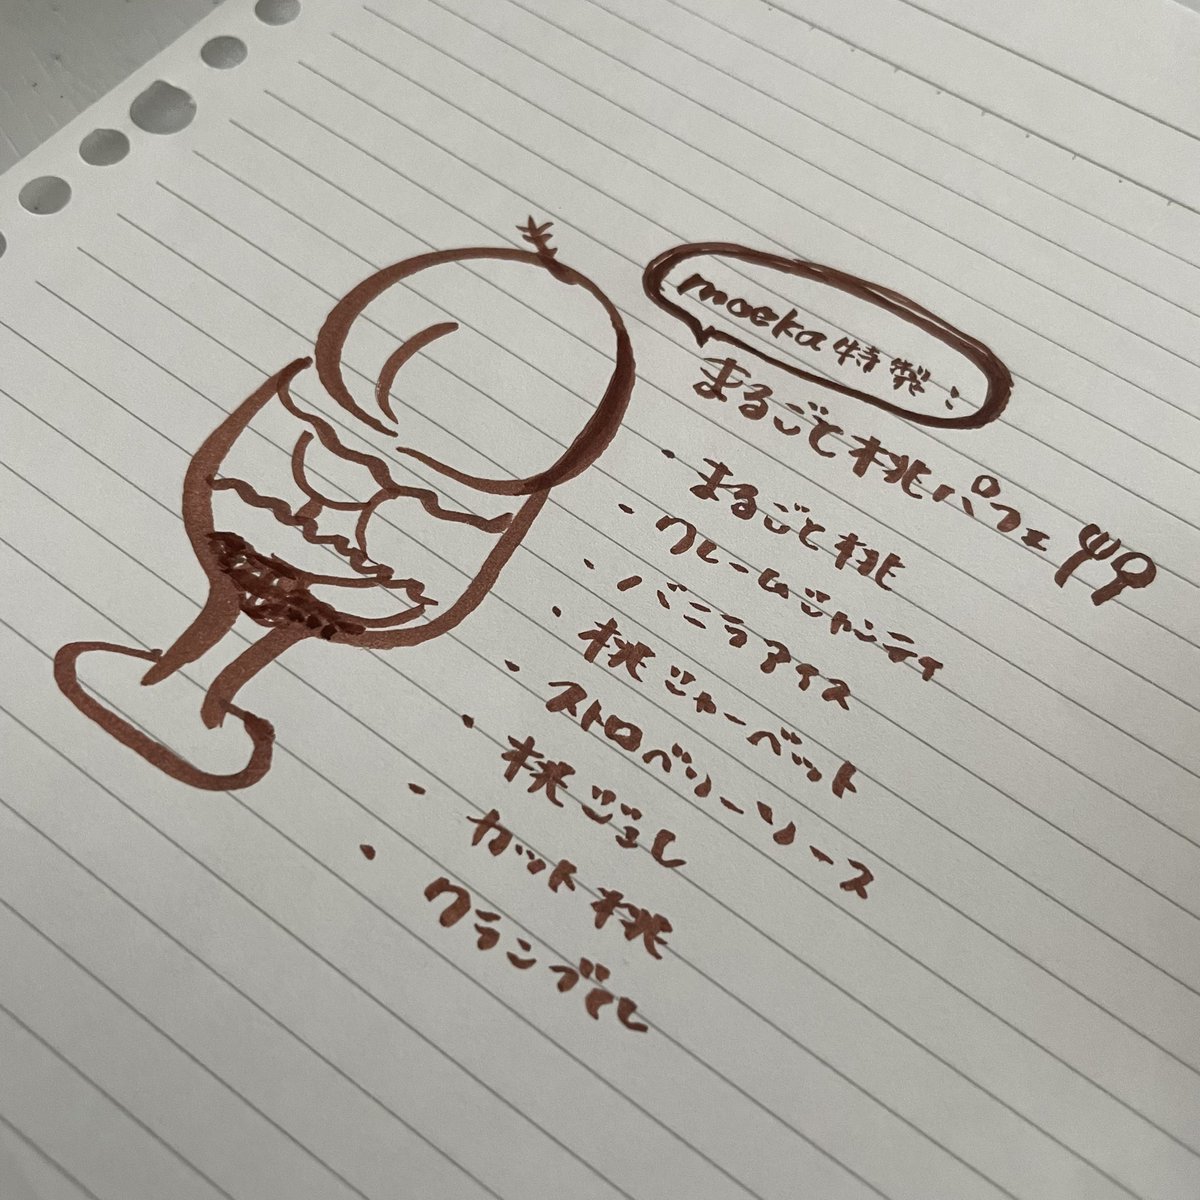 moeka特製:
まるごと桃パフェ
・まるごと桃
・クレームシャンティ
・バニラアイス
・桃シャーベット
・ストロベリーソース
・桃ジュレ
・カット桃
・クランブル